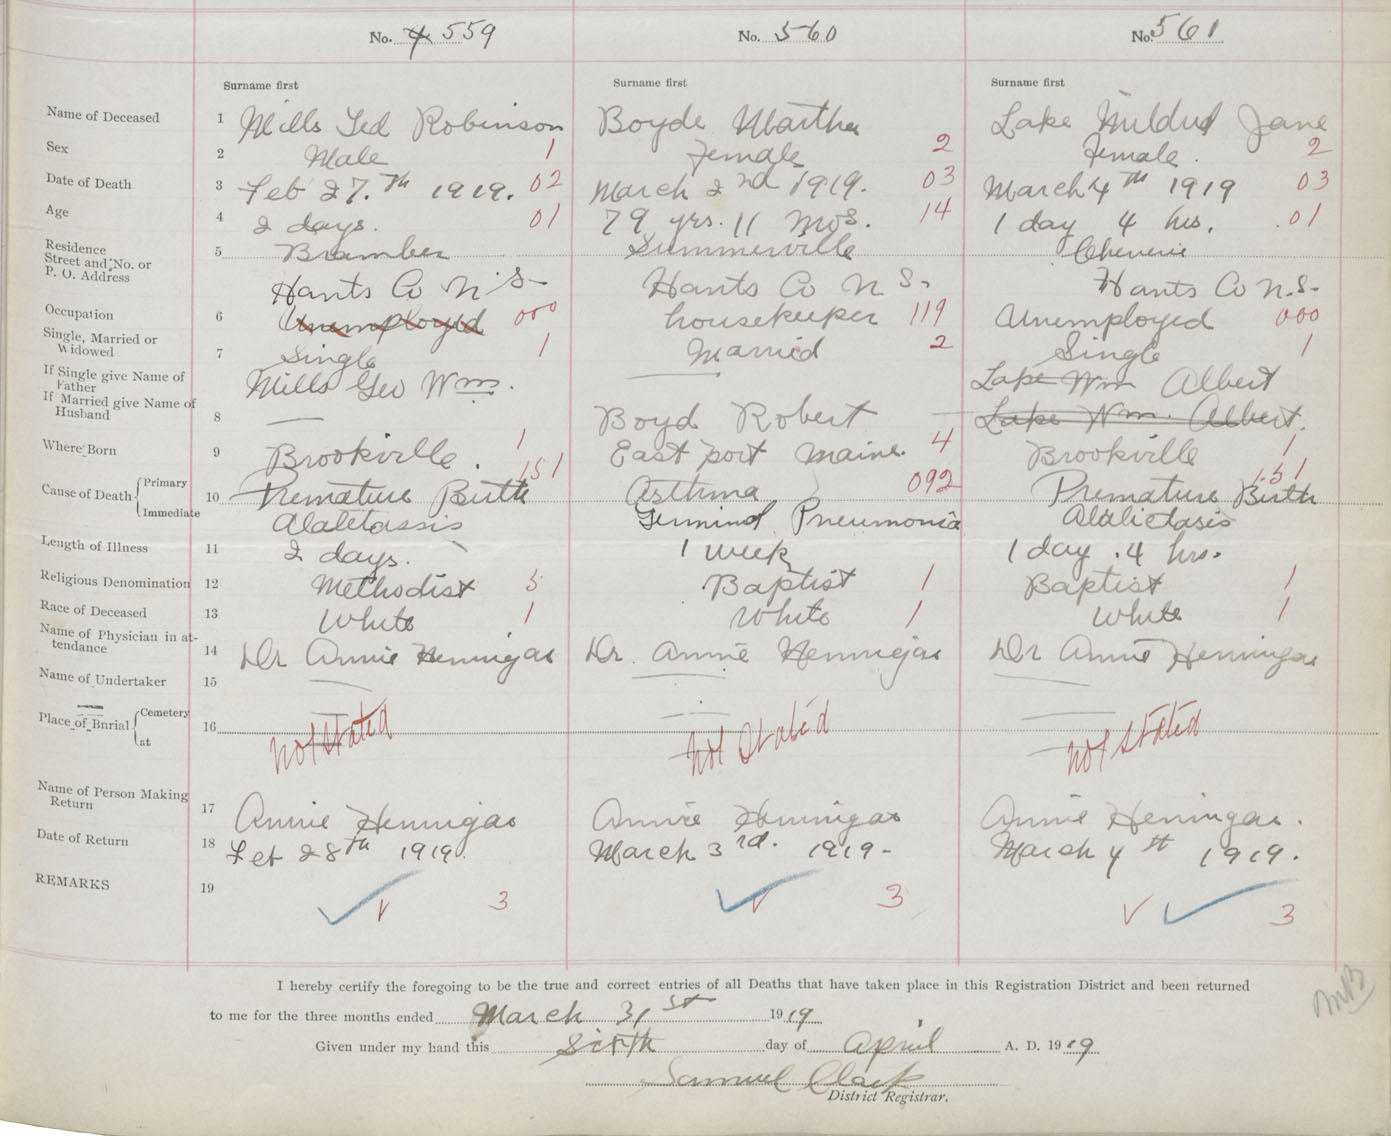 No. 4 559 No. 560 No. 561
Surname first Surname first Surname first
Name of Deceased 1 Mills Ted Robinson Boyde Martha Lake Mildred Jane
Sex 2 Male 1 Female 2 Female. 2
Date of Death 3 Feb 27.th 1919. 02 March 2nd 1919. 03 March 4th 1919 03
Age 4 2 days. 01 79 yrs. 11 Mos. 14 1 day 4 hrs. 01
Residence
Street and No. or
P. O. Address 5 Bramber Summerville Cheverie
Hants Co N S- Hants Co N S- Hants Co N.S-
Occupation 6 Unemployed 000 housekeeper 119 Unemployed 000
Single, Married or
Widowed 7 Single 1 Married 2 Single 1
If Single give Name of
Father Mills Geo Wm. — Lake Wm Albert
If Married give Name of
Husband 8 — Boyd Robert Lake Wm. Albert.
Where Born 9 Brookville. 1 East port Maine. 4 Brookville 1
Cause of Death Primary 10 Premature Birth 151 Asthma 092 Premature Birth 151
Immediate Alaletasis Terminal Pneumonia Alalictasis
Length of Illness 11 2 days. 1 week 1 day. 4 hrs.
Religious Denomination 12 Methodist 5 Baptist 1 Baptist 1
Race of Deceased 13 White 1 White 1 White 1
Name of Physician in at-
tendance 14 Dr Annie Hennigar Dr. Annie Hennigar Dr Annie Hennigar
Name of Undertaker 15
Place of Burial Cemetery 16
at Not Stated Not Stated Not Stated
Name of Person Making
Return 17 Annie Hennigar Annie Hennigar Annie Hennigar.
Date of Return 18 Feb 28th 1919. March 3rd. 1919- March 4th 1919.
REMARKS 19 3 3 3
I hereby certify the foregoing to be the true and correct entries of all Deaths that have taken place in this Registration District and been returned
to me for the three months ended March 31st 1919
Given under my hand this Sixth day of April A. D. 1919
Samuel Clark
District Registrar.
MB